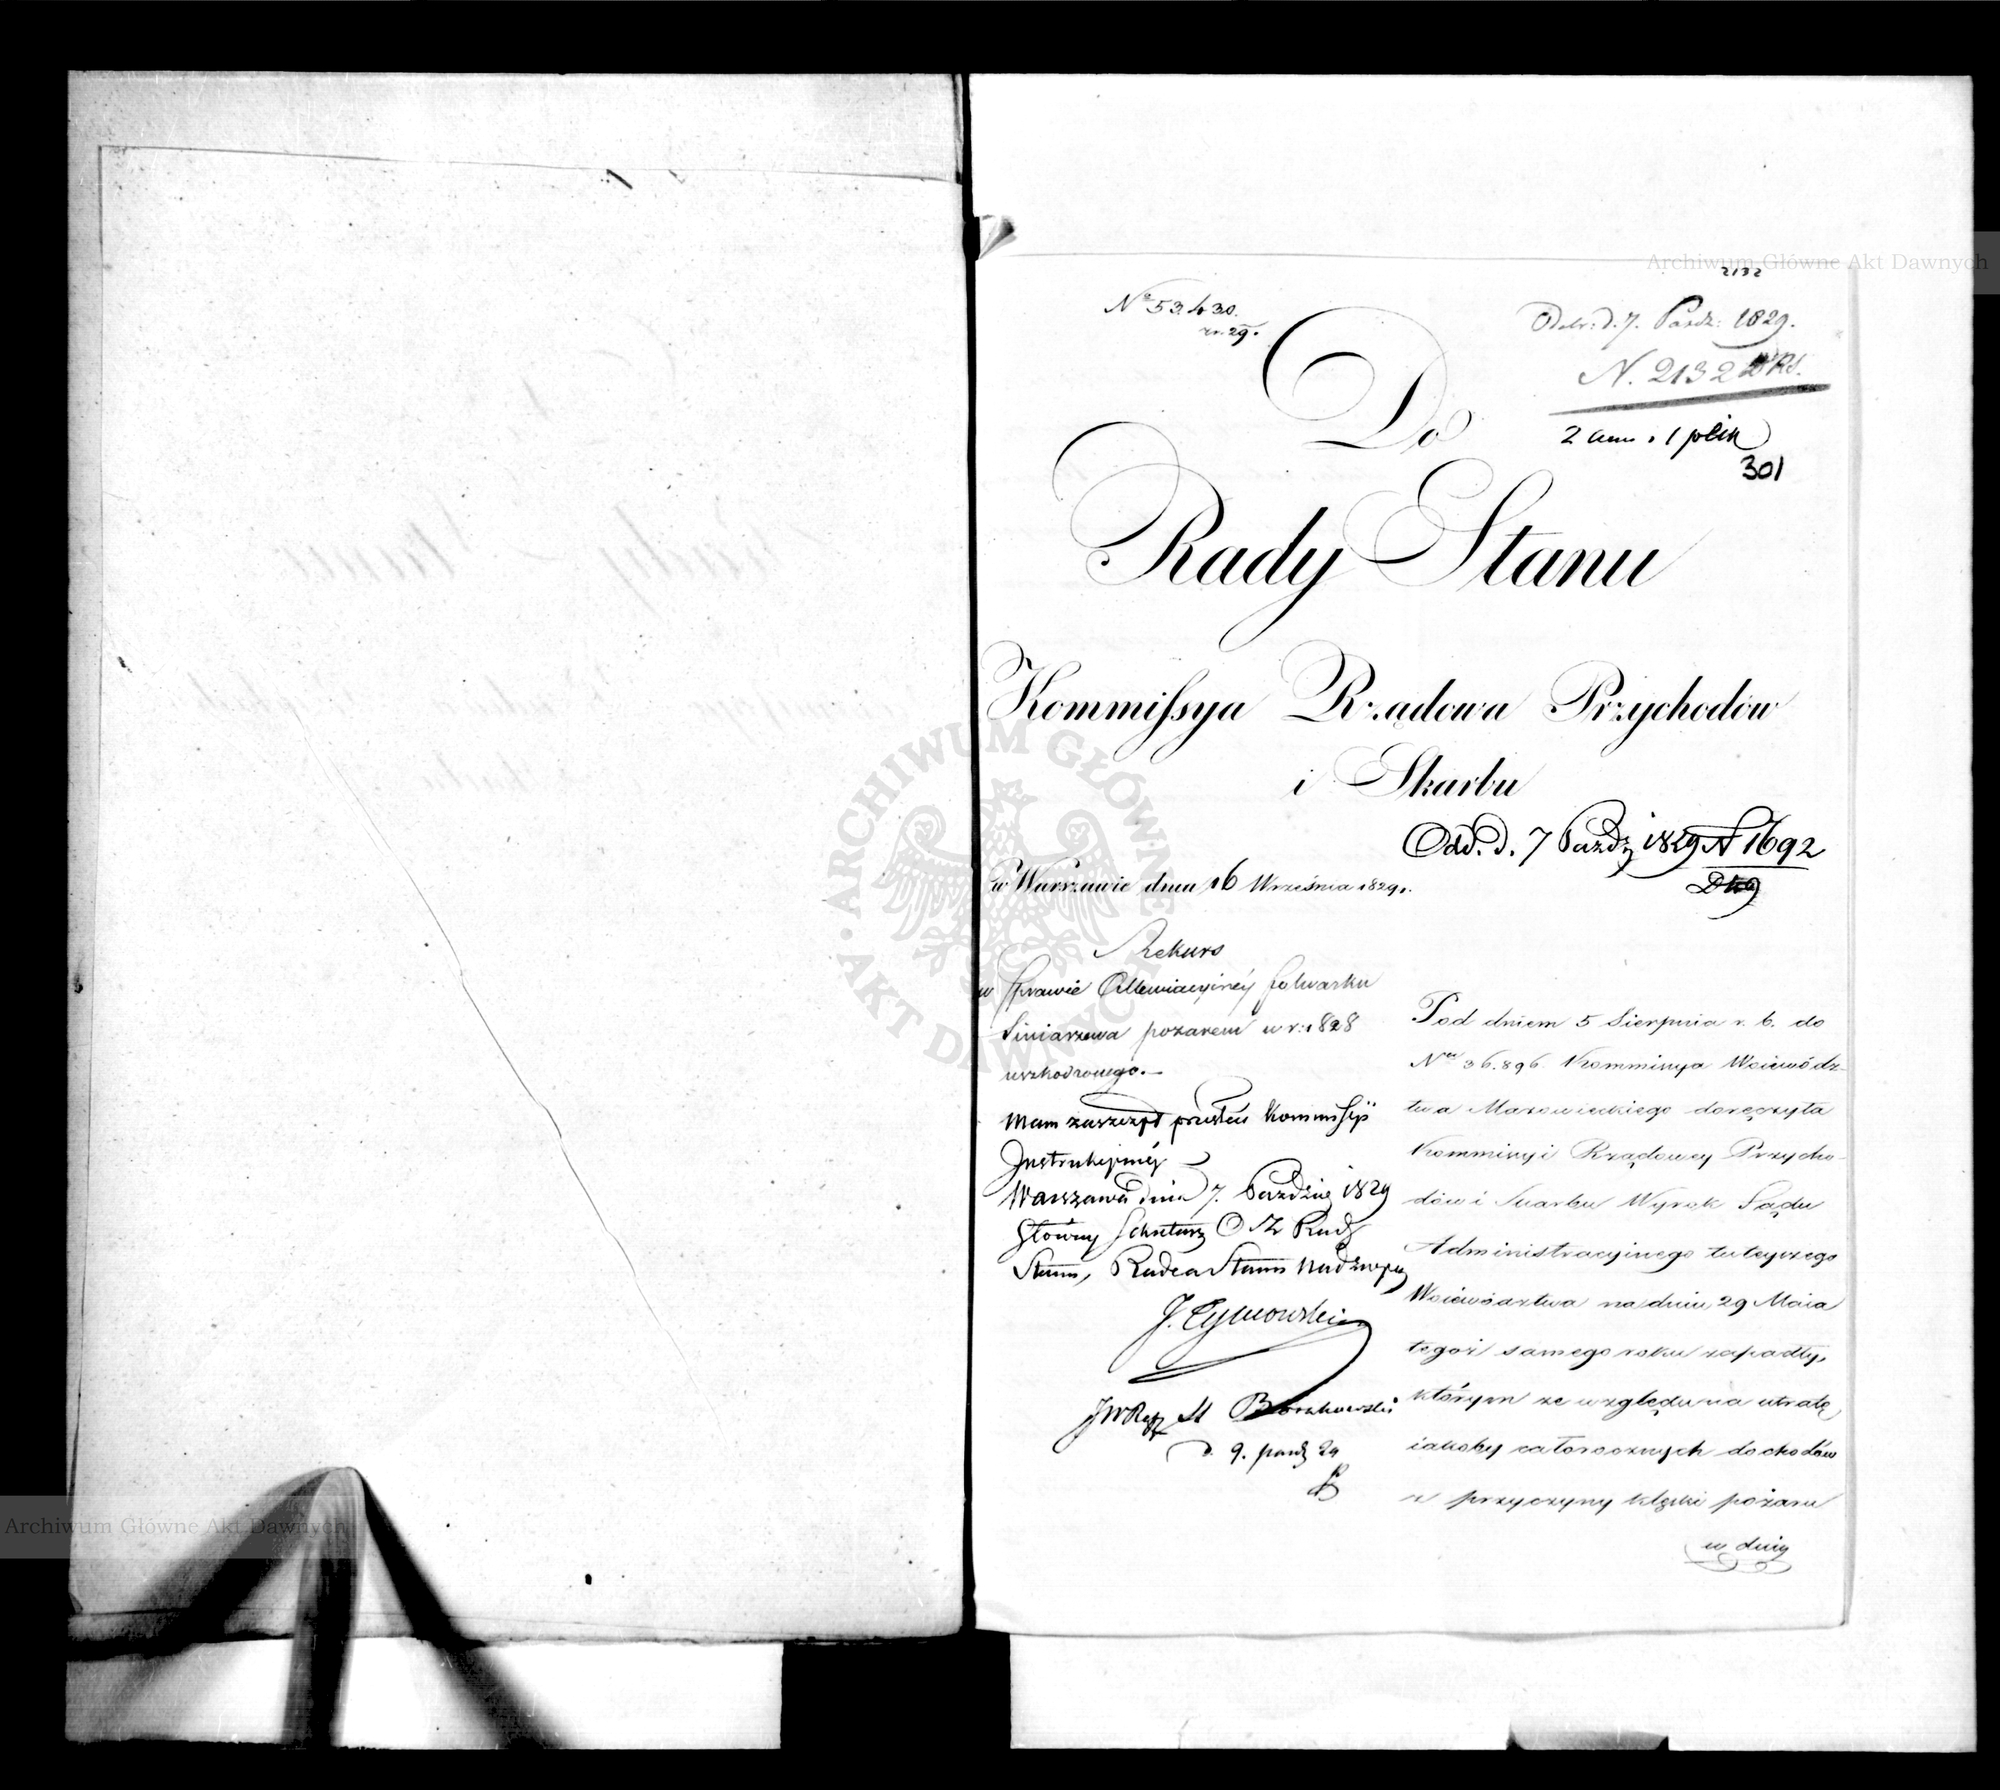 Archiwum Główne Akt Dawnych
2132
No 53.430.
z r. 29.
Odebr: d. 7. Paźdz: 1829.
N. 2132
2 ann. 1 plik
301
Do
Rady Stanu
Kommissya Rządowa Przychodów
i Skarbu
Odd. d. 7 Paźdz 1829 N 1692
w Warszawie dnia 16 Września 1829 r.
Rekurs
w sprawie Allewiacyinéy folwarku
Siniarzewa pożarem w r: 1828
uszkodzonego.
Mam zaszczyt przesłać Kommissyi
Instrukcyinéy
Warszawa dnia 7. Paździer 1829
Główny Sekretarz Rady
Stanu, Radca Stanu Nadzwycz
J. Tymowski
Borzkowski
d. 9. paźdz 29
Pod dniem 5 Sierpnia r. b. do
Nru 36.896. Kommissya Woiewódz-
twa Mazowieckiego doręczyła
Kommissyi Rządowey Przycho-
dów i Skarbu Wyrok Sądu
Administracyinego tuteyszego
Woiewództwa na dniu 29 Maia
tegoż samego roku zapadły,
którym ze względu na utratę
iakoby całorocznych dochodów
z przyczyny klęski pożaru
w dniu
ARCHIWUM GŁÓWNE AKT DAWNYCH
Archiwum Główne Akt Dawnych